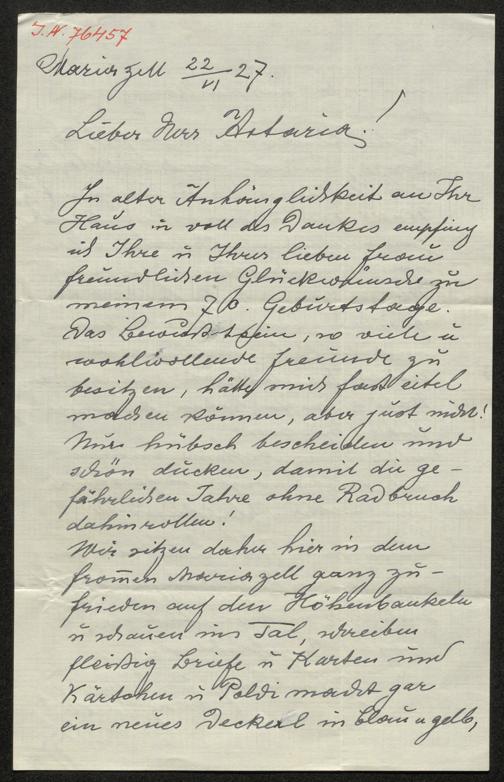 J.N. 76457
Mariazell 22/VI 27.
Lieber Herr Artaria!
In alter Anhänglichkeit an Ihr
Haus u voll des Dankes empfing
ich Ihre u Ihrer lieben Frau
freundlichen Glückwünsche zu
meinem 70. Geburtstage.
Das Bewußtsein, so viele u
wohlwollende Freunde zu
besitzen, hätte mich fast eitel
machen können, aber just nicht!
Nur hübsch bescheiden und
schön ducken, damit die ge-
fährlichen Jahre ohne Radbruch
dahinrollen!
Wir sitzen daher hier in dem
from̄en Mariazell ganz zu-
frieden auf den Höhenbankeln
u schauen ins Tal, schreiben
fleißig Briefe u Karten und
Kärtchen u Poldi macht gar
ein neues Deckerl in blau u gelb,